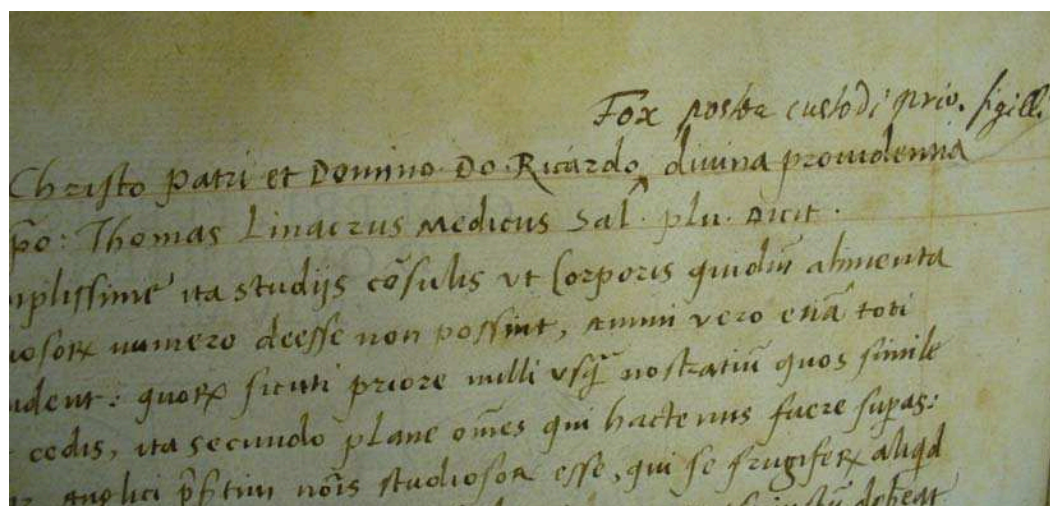 Fox postea custodi priv. sigilli
Christo Patri et Domino Do. Ricardo divina providentia
põ: Thomas Linacrus Medicus Sal. plu. dicit.
mplissime ita studijs cõsulis ut Corporis quidẽ alimenta
numero deesse non possint, animi vero etiã toti
ndent: quorꝝ sicuti priore nulli usq̃ nostratiũ quos simile
cedis, ita secundo plane om̃es qui hactenus fuere supas:
anglici p̃sertim nõis studiosor esse, qui se frugiferꝝ aliqd
debeat